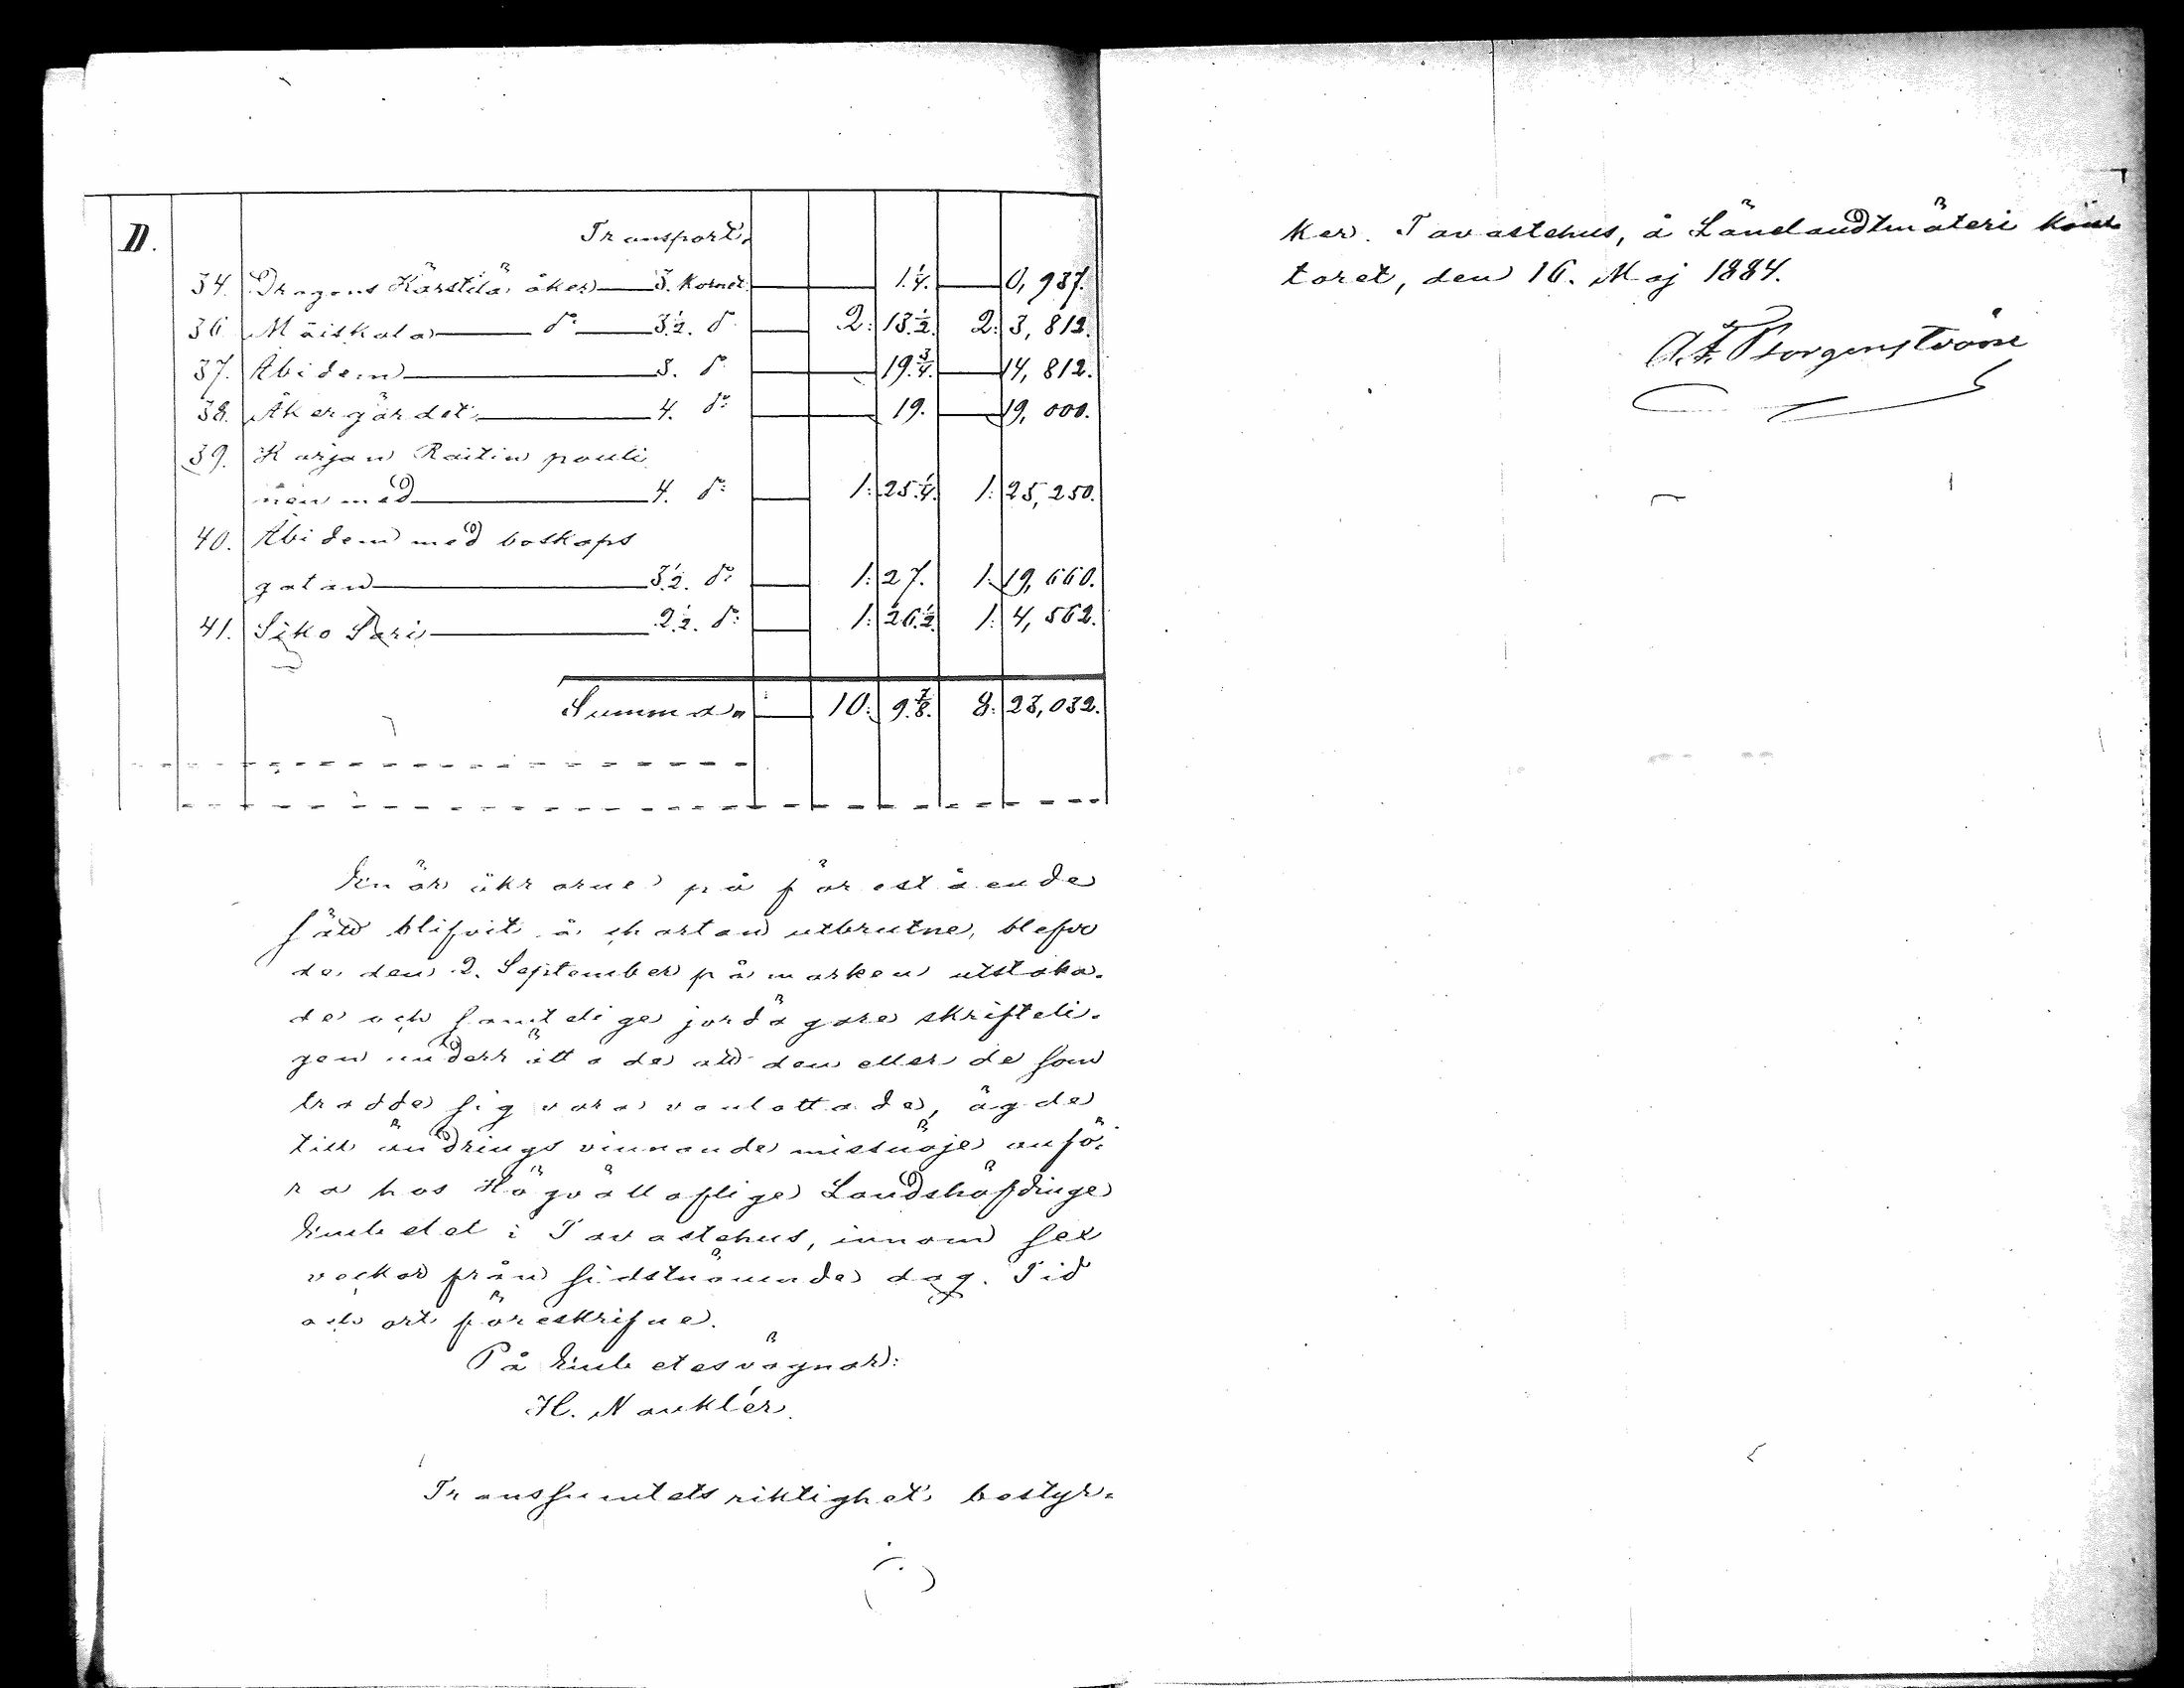 D. Transport.
34. Dragons Kärstilä åker 3. Kornet. 1.1/4. 0,937.
36 Mäiskala do 3.1/2. do 2: 13.1/2. 2: 3,812.
37. Abidem 3. do 19.3/4. 14,812.
38. Åkergärdet 4. do 19. 19,000.
39. Karjan Raitin pouli
nen med 4. do 1: 25.1/4. 1: 25,250.
40. Abidem med boskaps
gatan 3.1/2. do 1: 27. 1: 19,660.
41. Siko Sari 2.1/2. do 1: 26.1/2. 1: 4,562.
Summa 10: 9.7/8. 8: 23,032.
När åkrarne på förestående
sätt blifvit å chartan utbrutne, blefvo
de den 2. September på marken utstaka-
de och samtelige jordägare skrifteli-
gen underrättade att den eller de som
trodde sig vara vanlottade, ägde
till ändrings vinnande missnöje anfö-
ra hos Högvällofliga Landshöfdinge
Embetet i Tavastehus, innom sex
veckor från sidstnämnde dag. Tid
och ort föreskrifne.
På Embetesvägnar:
H. Nauklér.
Transsumtets riktighet bestyr-
ker. Tavastehus, å Länelandtmäteri kon-
toret, den 16. Maj 1884.
A. F. Borgenström